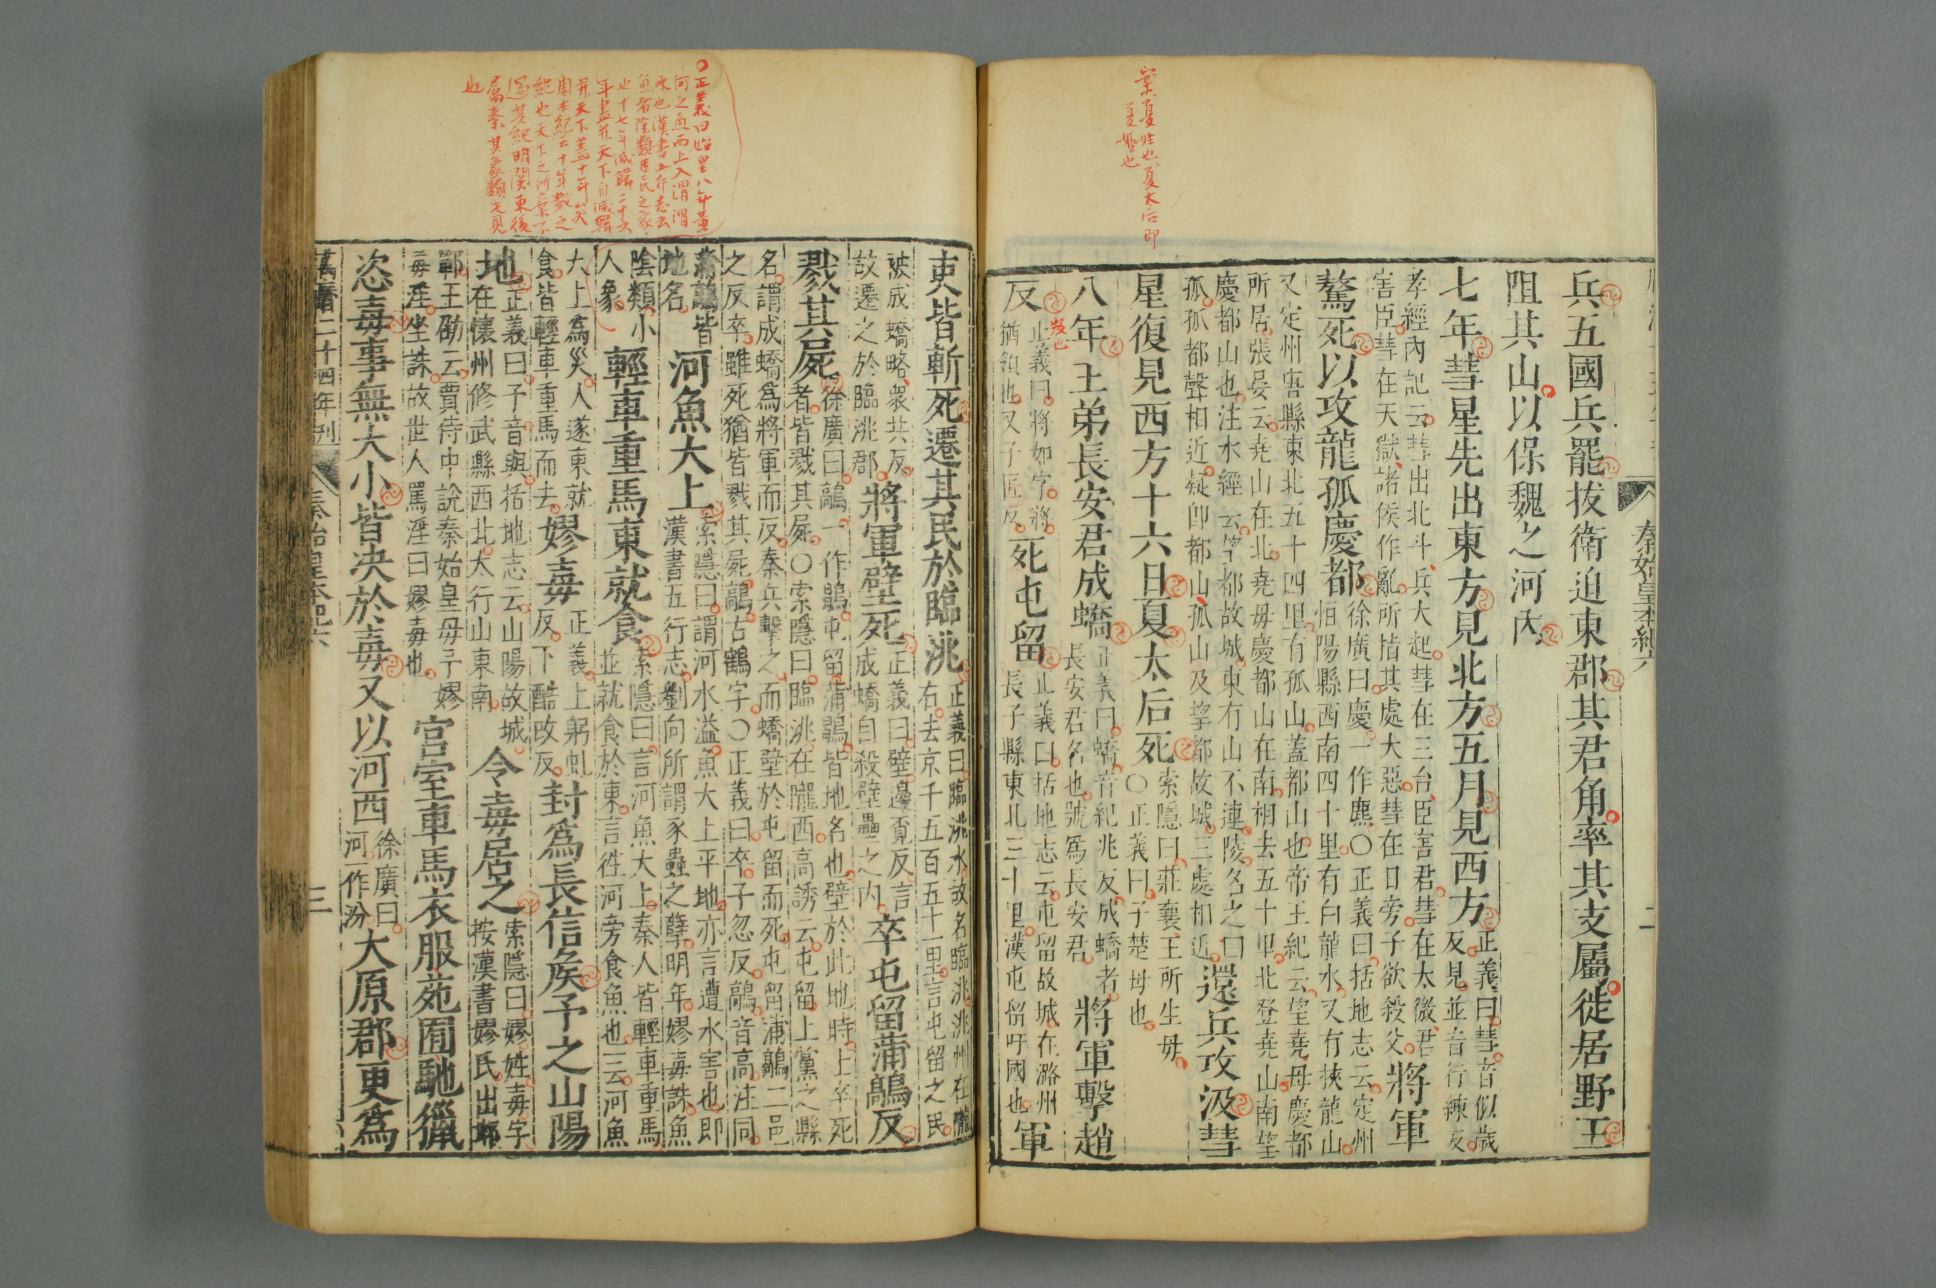 案夏姓也夏太后即
夏姬也
秦始皇本紀六 二
兵五國兵罷拔衛迫東郡其君角率其支屬徙居野王
阻其山以保魏之河內
七年彗星先出東方見北方五月見西方 正義曰彗音似歲
反見並音行練反
孝經內記云彗出北斗兵大起彗在三台臣害君彗在太微君
害臣彗在天獄諸侯作亂所指其處大惡彗在日旁子欲殺父 將軍
驁死以攻龍孤慶都 徐廣曰慶一作麃〇正義曰括地志云定州
恒陽縣西南四十里有白龍水又有挾龍山
又定州唐縣東北五十四里有孤山蓋都山也帝王紀云望堯母慶都
所居張晏云堯山在北堯母慶都山在南相去五十里北登堯山南望
慶都山也注水經云望都故城東有山不連陵名之曰
孤孤都聲相近疑即都山孤山及望都故城三處相近 還兵攻汲彗
星復見西方十六日夏太后死 索隱曰莊襄王所生母
〇正義曰子楚母也
八年王弟長安君成蟜 正義曰蟜音紀兆反成蟜者
長安君名也號爲長安君 將軍擊趙
反 正義曰將如字將
猶領也又子匠反 死屯留 正義曰括地志云屯留故城在潞州
長子縣東北三十里漢屯留吁國也 軍
〇正義曰始皇八年黃
河之魚西上入渭渭
水也漢書五行志云
魚者陰類臣民之象
也十七年滅韓二十六
年盡并天下自滅韓
并天下蓋十年矣
周本紀云十年數之
紀也天下之所棄不
過其紀明關東後
屬秦其象類先見
也
吏皆斬死遷其民於臨洮 正義曰臨洮水故名臨洮洮州在隴
右去京千五百五十一里言屯留之民
被成蟜略衆共反
故遷之於臨洮郡 將軍壁死 正義曰壁邊覓反言
成蟜自殺壁壘之內 卒屯留蒲鶮反
戮其屍 徐廣曰鶮一作鶮屯留蒲鶮皆地名也壁於此地時上卒死
者皆戮其屍〇索隱曰臨洮在隴西高誘云屯留上黨之縣
名謂成蟜爲將軍而反秦兵擊之而蟜壁於屯留而死屯留蒲鶮二邑
之反卒雖死猶皆戮其屍鶮古鶴字〇正義曰卒子忽反鶮音高注同
蒲鶮皆
地名 河魚大上 索隱曰謂河水溢魚大上平地亦言遭水害也即
漢書五行志劉向所謂豕蟲之孽明年嫪毐誅魚
陰類小
人象 輕車重馬東就食 索隱曰言河魚大上秦人皆輕車重馬
並就食於東言往河旁食魚也一云河魚
大上爲災人遂東就
食皆輕車重馬而去 嫪毐 正義上躬虬
反下酷改反 封爲長信侯予之山陽
地 正義曰予音與括地志云山陽故城
在懷州修武縣西北太行山東南 令毐居之 索隱曰嫪姓毐字
按漢書嫪氏出邯
鄲王劭云賈侍中說秦始皇母予嫪
毐淫坐誅故世人罵淫曰嫪毐也 宮室車馬衣服苑囿馳獵
恣毐事無大小皆決於毐又以河西 徐廣曰
河一作汾 大原郡更爲
萬曆二十四年刊 秦始皇本紀六 三